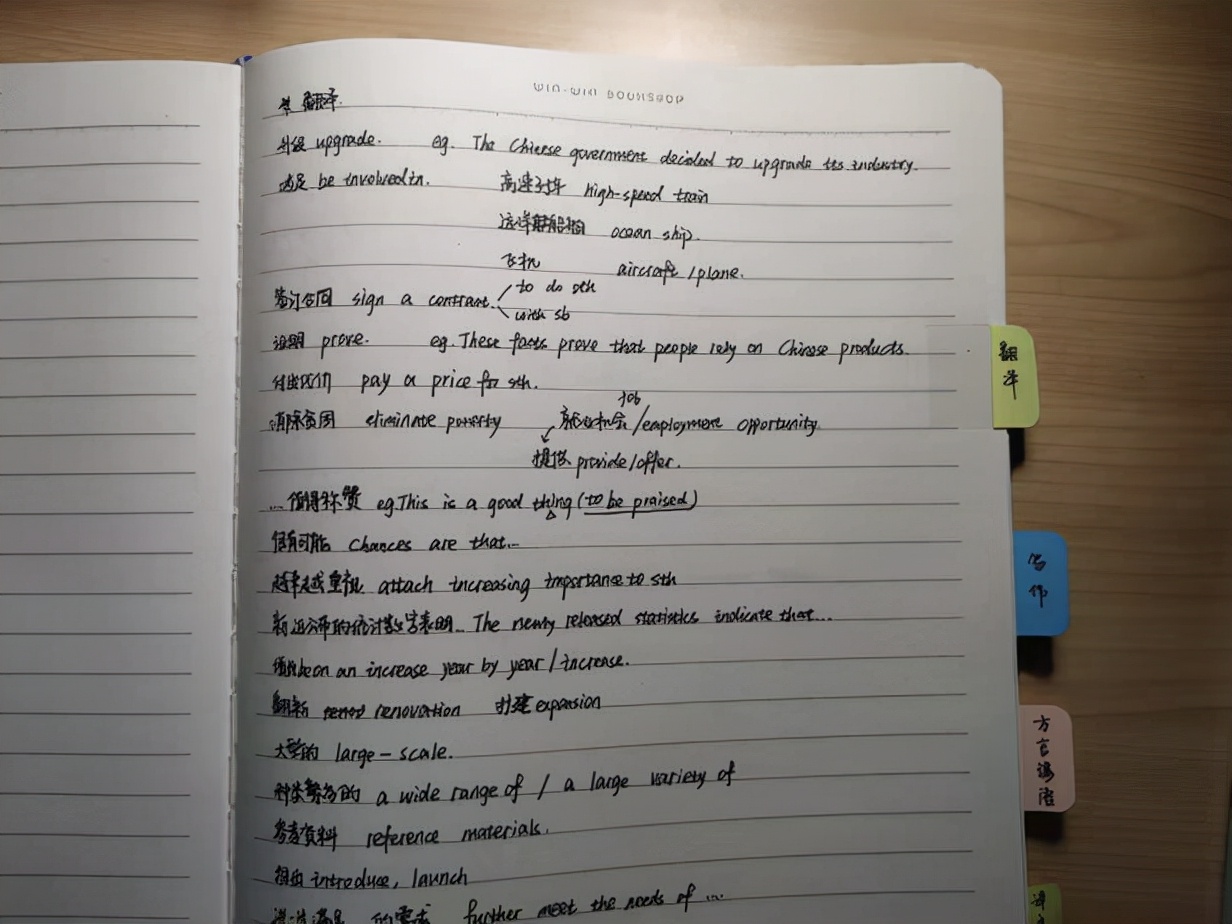 WIN-WIN BOOKSHOP
翻译.
升级 upgrade. eg. The Chinese government decided to upgrade its industry.
be involved in. 高速列车 high-speed train
ocean ship.
飞机 aircraft /plane.
签订合同 sign a contrant. to do sth
with sb
证明 prove. eg. These facts prove that people rely on Chinese products.
付出代价 pay a price for sth.
job
消除贫困 eliminate poverty 就业机会/employment opportunity
提供 provide/offer.
...值得称赞 eg.This is a good thing (to be praised)
很有可能 Chances are that...
越来越重视 attach increasing importance to sth
新近公布的统计数字表明... The newly released statistics indicate that...
be on an increase year by year / increase.
翻新 renovation 扩建 expansion
大型的 large-scale.
种类繁多的 a wide range of / a large variety of
参考资料 reference materials.
推出 introduce, launch
进一步满足...的需求 further meet the needs of ...
翻译
写作
方言谚语